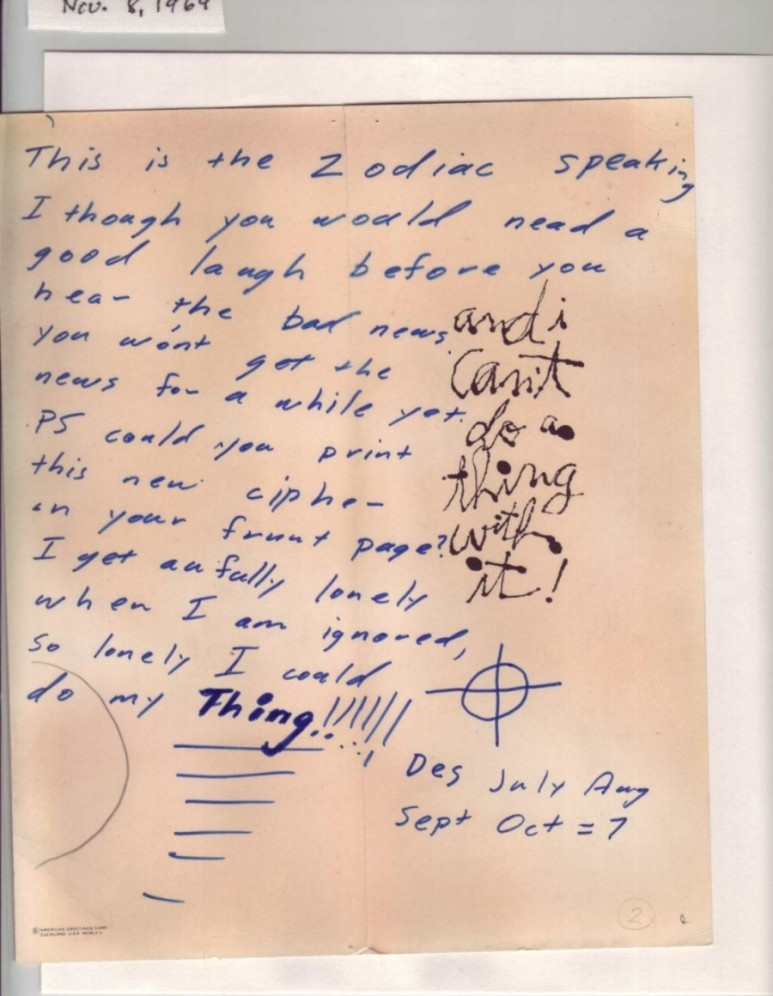 Nov. 8, 1969
This is the Zodiac speaking
I though you would nead a
good laugh before you
hear the bad news.
you won't get the
news for a while yet.
PS could you print
this new cipher
on your frunt page?
I get aufully lonely
when I am ignored,
so lonely I could
do my Thing!!!!!!
and i
can't
do a
thing
with
it!
Des July Aug
Sept Oct = 7
2
© AMERICAN GREETINGS CORP.
CLEVELAND U.S.A.